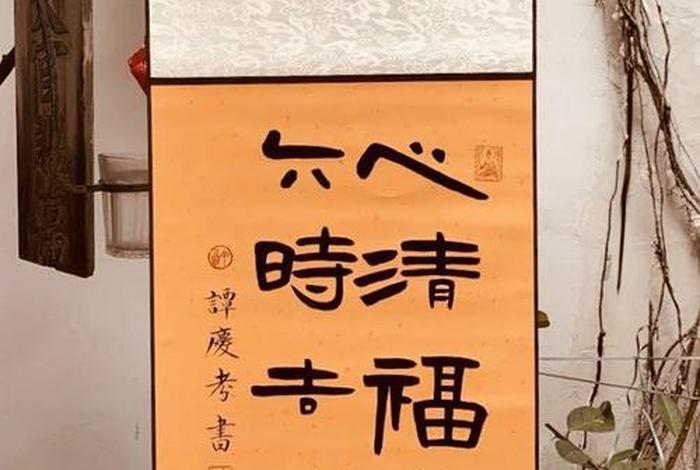 心清福
六時吉
譚慶考書